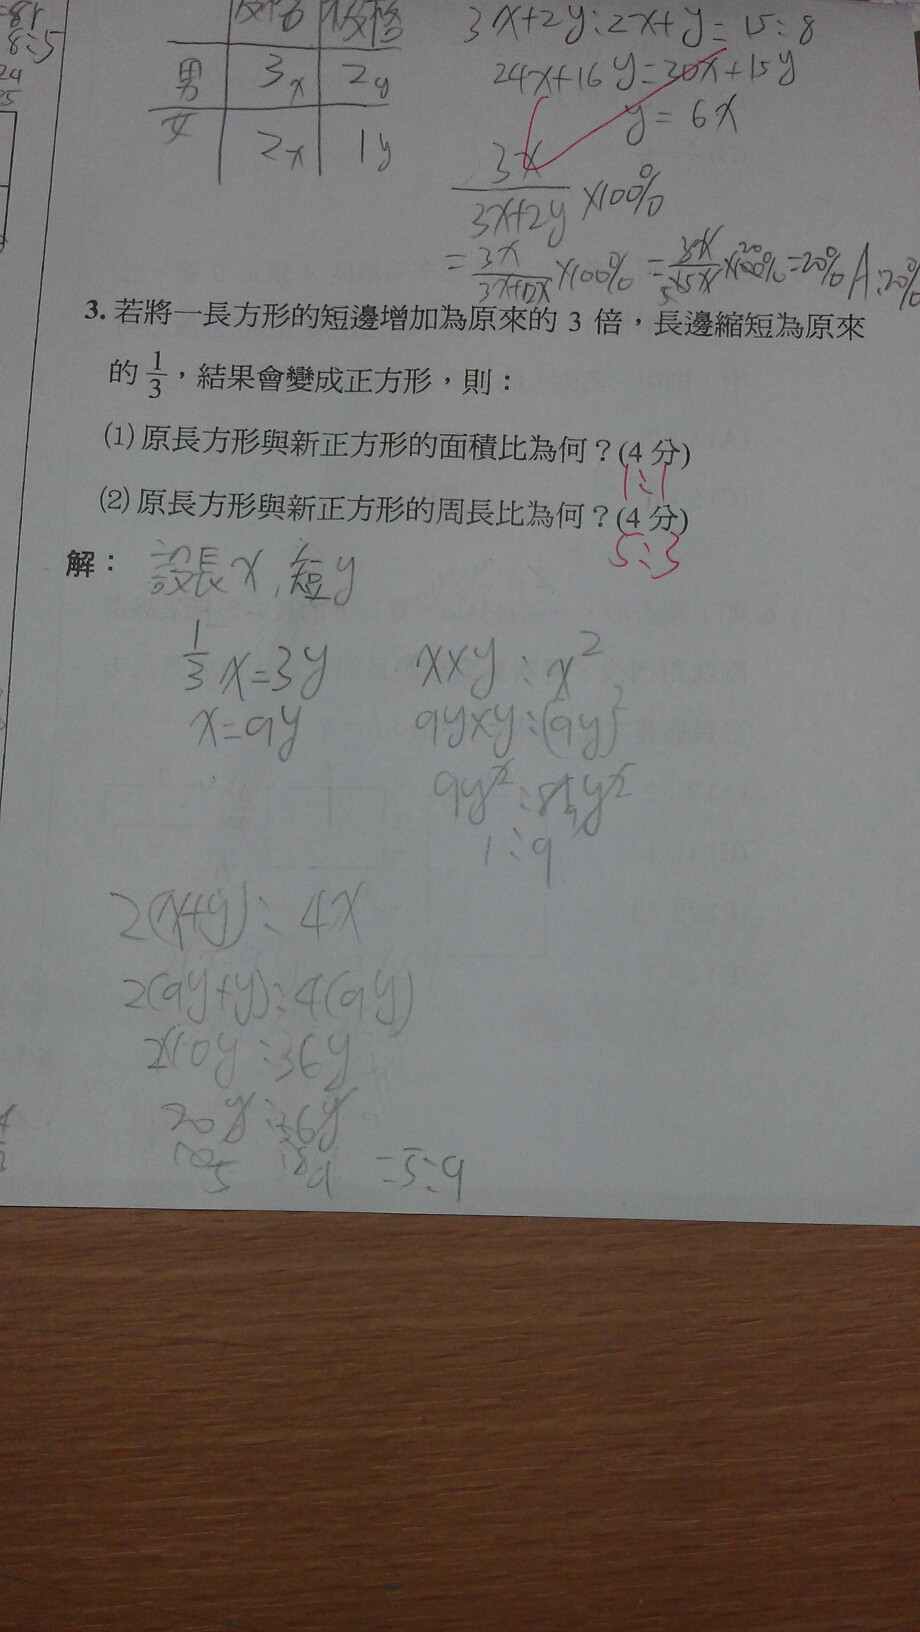 8:5
24
及格 不及格
男 3x 2y
女 2x 1y
3x+2y:2x+y=15:8
24x+16y=30x+15y
y=6x
3x
3x+2y ×100%
=3x/3x+12x ×100%=3x/15x×100%=20% A:20%
3. 若將一長方形的短邊增加為原來的 3 倍，長邊縮短為原來
的 1/3，結果會變成正方形，則：
(1) 原長方形與新正方形的面積比為何？(4 分)
1:1
(2) 原長方形與新正方形的周長比為何？(4 分)
5:3
解：設長x,短y
1/3 x=3y
x=9y
x×y:x²
9y×y:(9y)²
9y²:81y²
1:9
2(x+y):4x
2(9y+y):4(9y)
2×10y:36y
20y:36y
10 5 18 9 =5:9